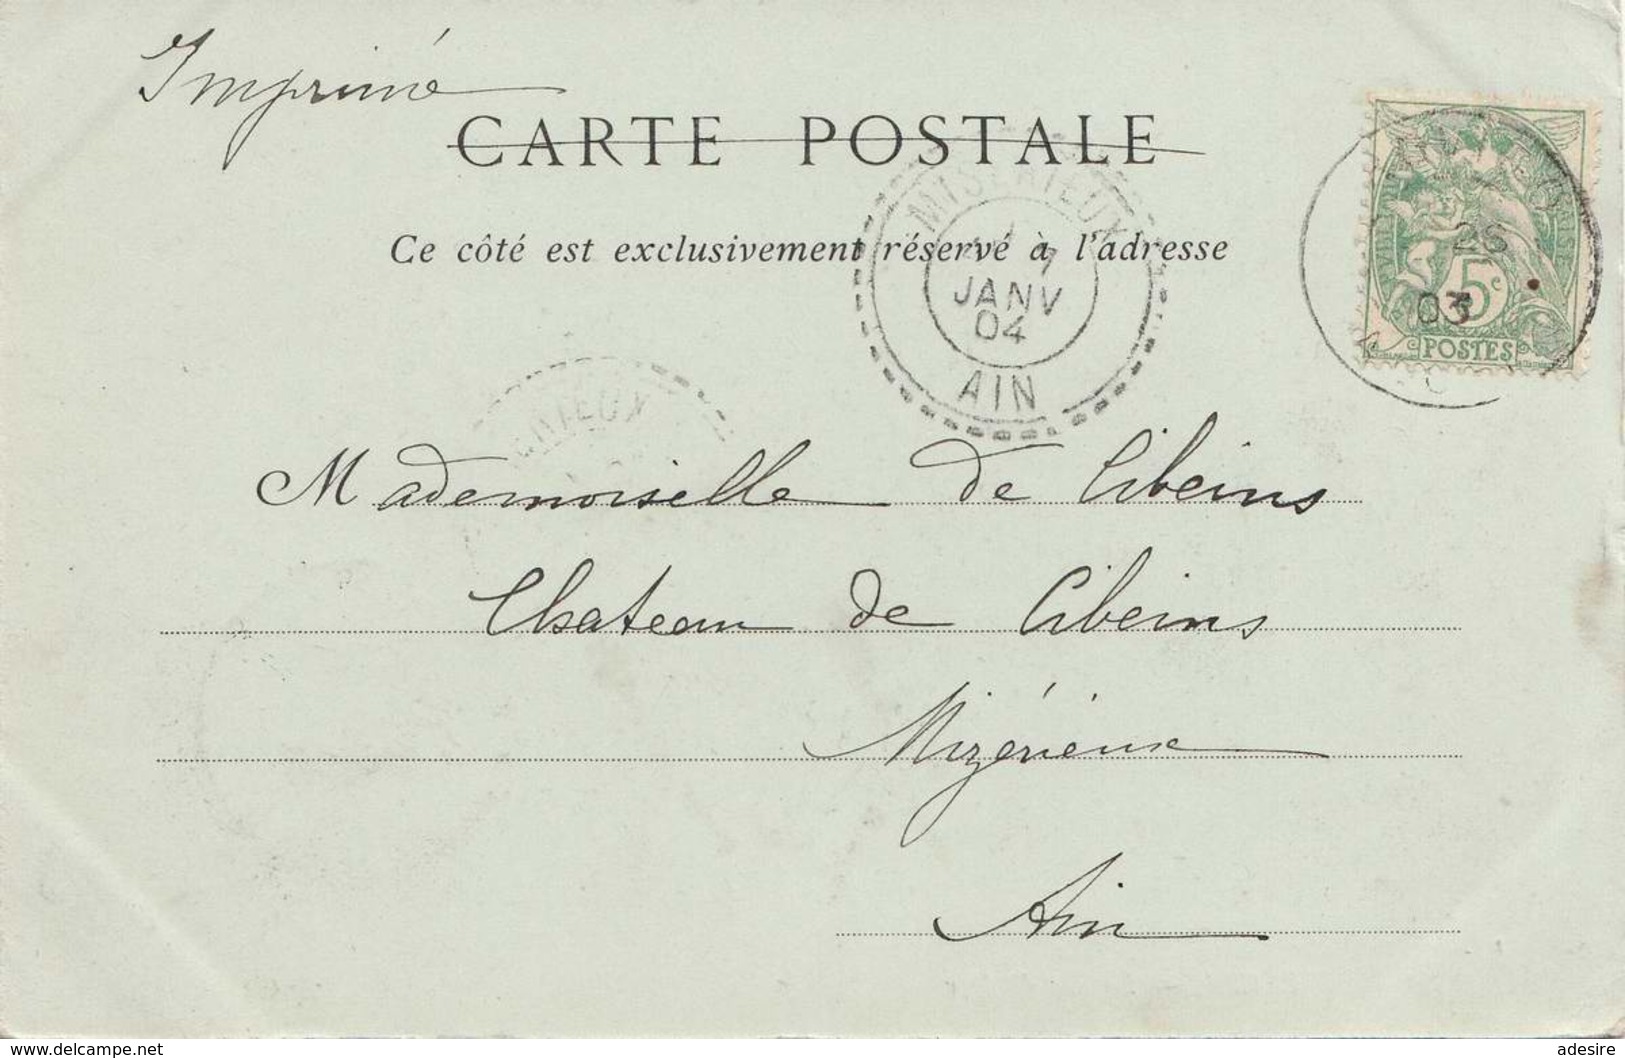 Imprimé
CARTE POSTALE
Ce côté est exclusivement réservé à l'adresse
MISERIEUX
7
JANV
04
AIN
26
03
5c
POSTES
Mademoiselle de Cibeins
Chateau de Cibeins
Mizérieux
Ain
www.delcampe.net
adesire